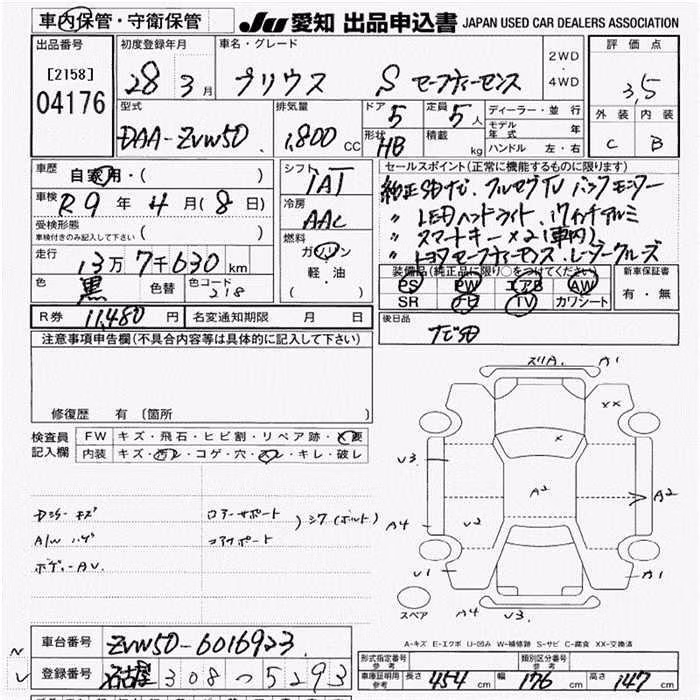 車内保管・守衛保管
JU 愛知 出品申込書 JAPAN USED CAR DEALERS ASSOCIATION
出品番号 [2158] 04176
初度登録年月 28 3月
車名・グレード プリウス S セーフティーセンス
2WD・4WD
評価点 3,5
外装 C 内装 B
型式 DAA-ZVW50
排気量 1,800 CC
ドア 5 定員 5人
形状 HB 積載 kg
ディーラー・並行
モデル年式 年
ハンドル 左・右
車歴 自家用・( )
車検 R9年4月(8日)
受検形態 車検付きのみ記入して下さい ( )
走行 13万7千630km
色 黒 色替 色コード 218
シフト IAT
冷房 AAC
燃料 ガソリン 軽・油 ( )
セールスポイント(正常に機能するものに限ります)
純正SDナビ、フルセグTV バックモニター
〃 LEDヘッドライト、17インチアルミ
〃 スマートキー×2(車内)
〃 トヨタセーフティーセンス、レーダークルーズ
装備品(純正品に限り○をつけてください)
PS PW エアB AW
SR ナビ TV カワシート
新車保証書 有・無
R券 11,480円 名変通知期限 月 日
後日品 ナビSD
注意事項申告欄(不具合内容等は具体的に記入して下さい)
修復歴 有 〔箇所 〕
検査員記入欄 FW キズ・飛石・ヒビ割・リペア跡・X要
内装 キズ・汚レ・コゲ・穴・スレ・キレ・破レ
A/W ハゲ
ボディーAU
ロアーサポート
コアサポート
)シワ(ボルト)
ズリA. A1
XX
X
U3
A2
A2
A4
U2
U1
A1
スペア
A4
U3.
A-キズ E-エクボ U-凹み W-補修跡 S-サビ C-腐食 XX-交換済
車台番号 ZVW50-6016923
登録番号 名古屋 308 ~ 5293
形式指定番号 参考 類別区分番号 参考
車庫証明用参考 長さ 454cm 幅 176cm 高さ 147cm